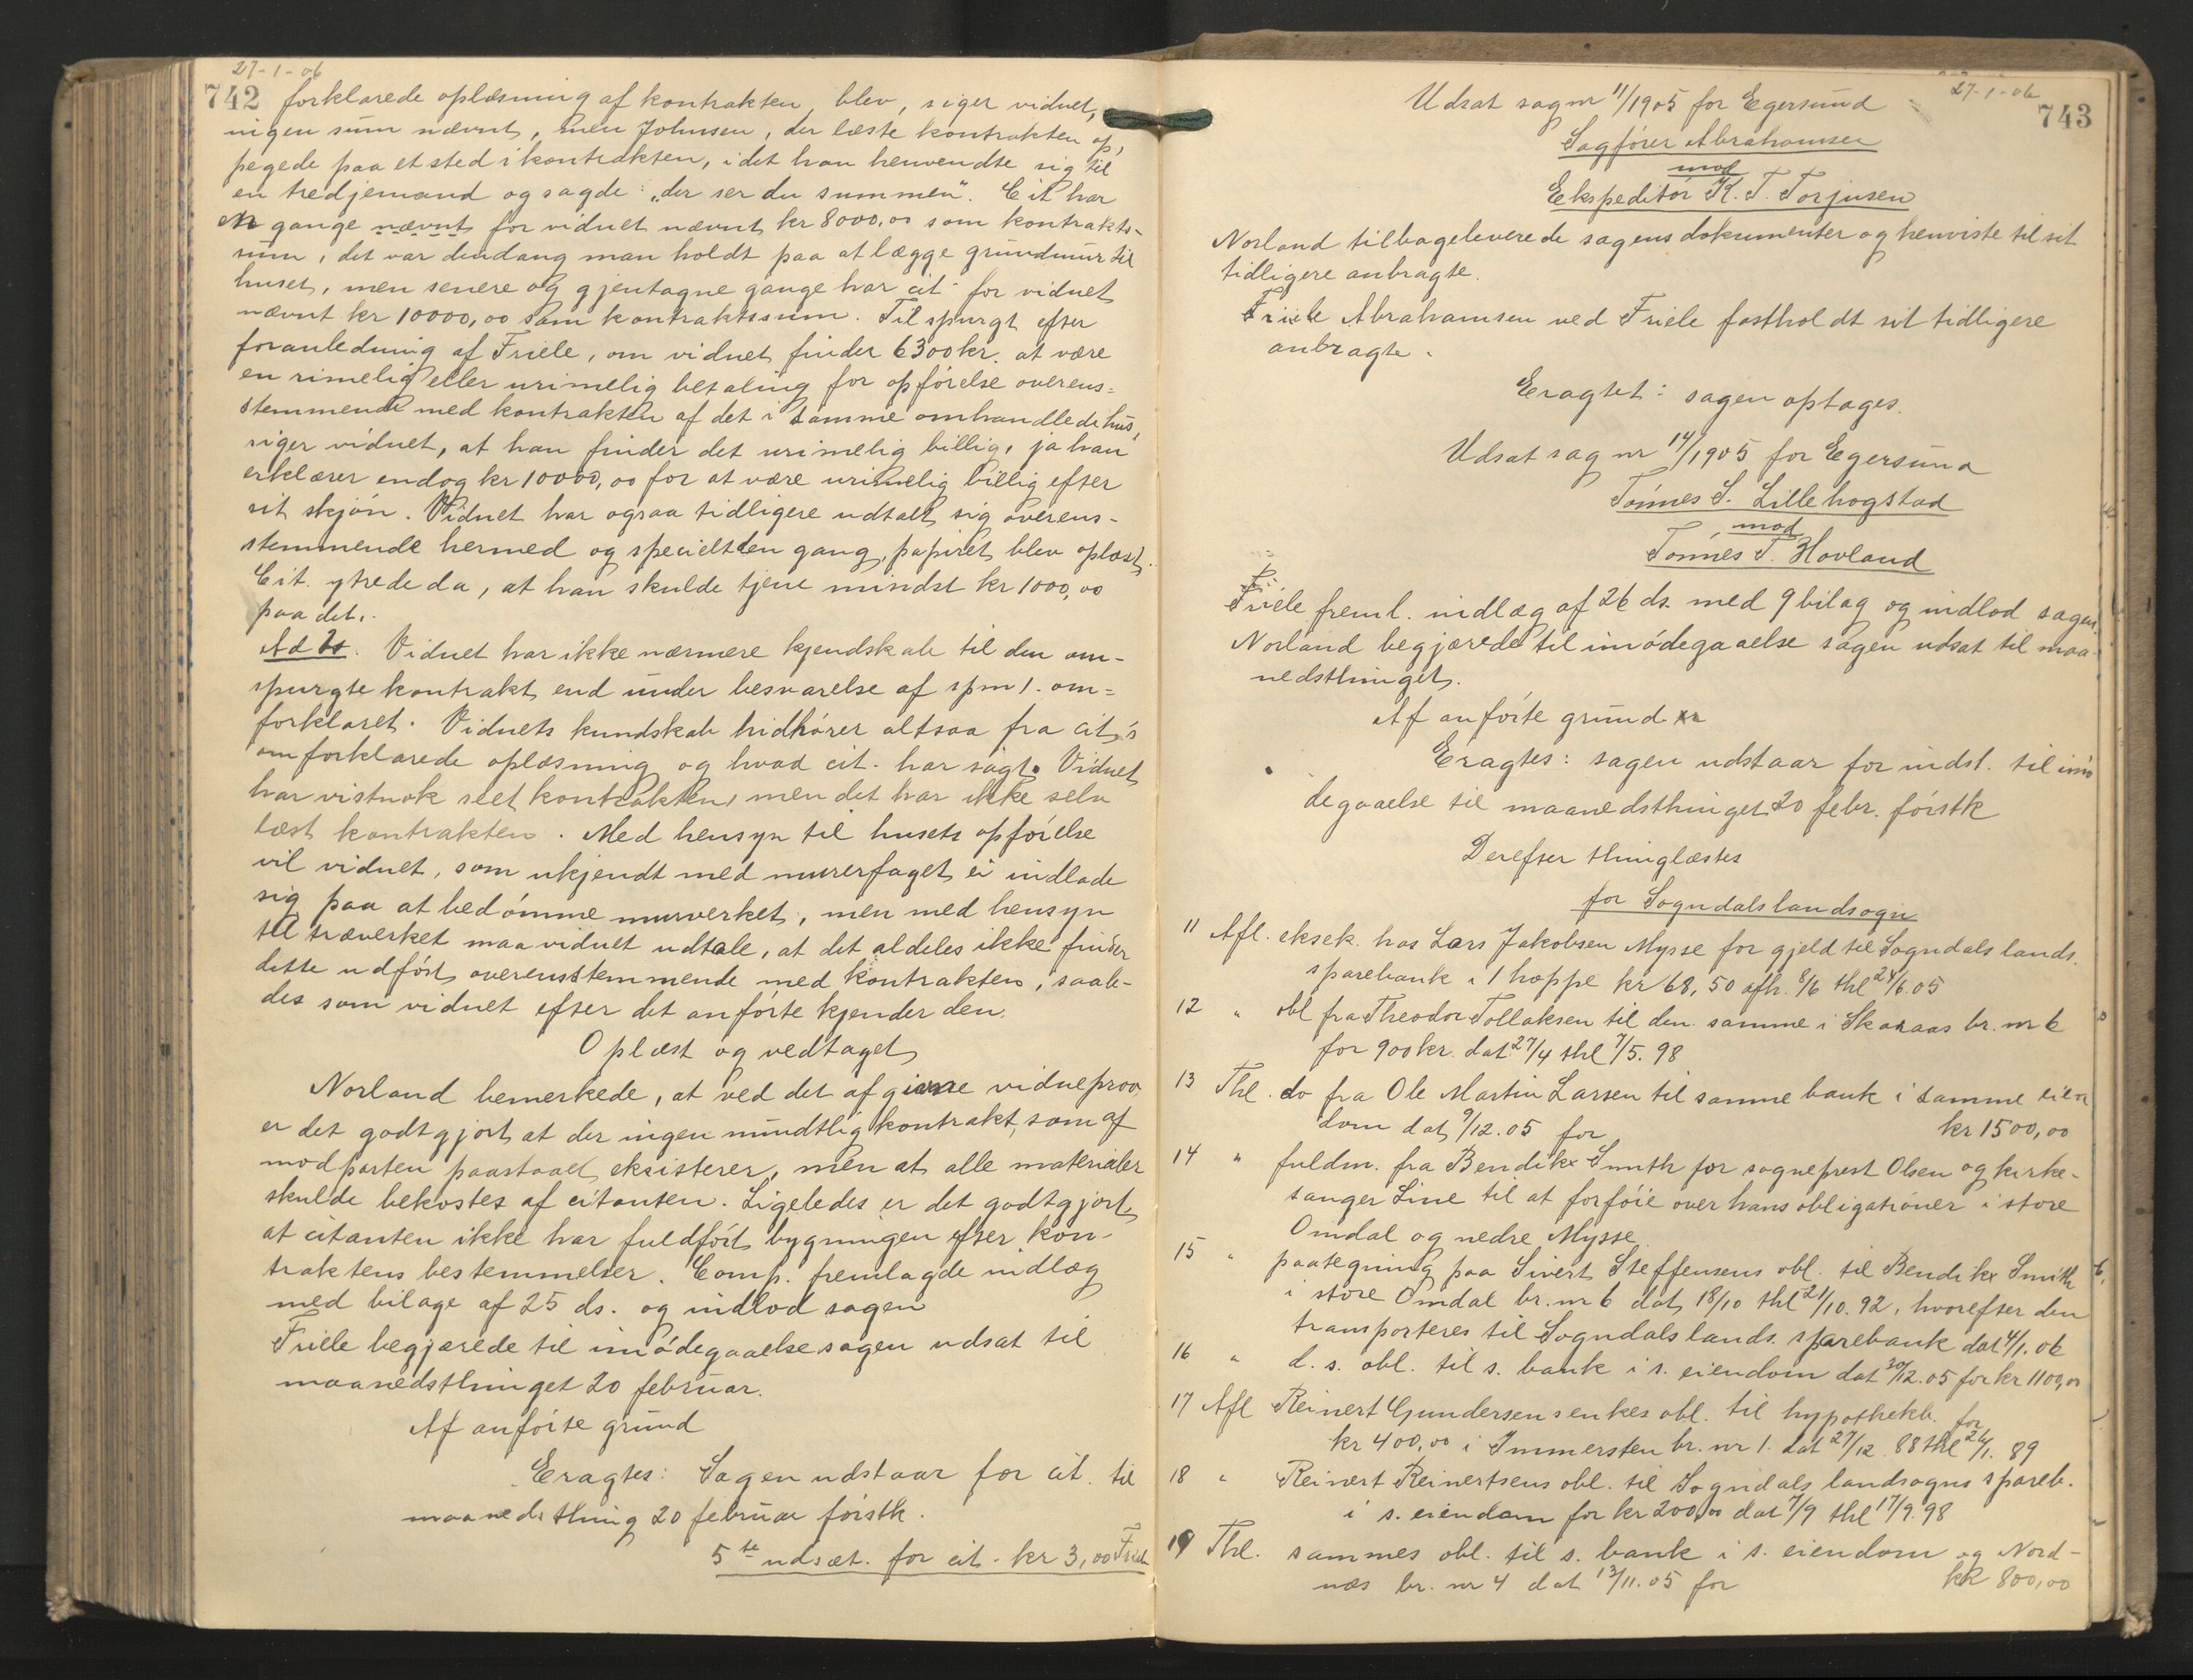 27-1-06
742 forklarede oplæsning af kontrakten, blev, siger vidnet,
ingen sum nævnt, men Johnsen, der læste kontrakten op,
pegede paa et sted i kontrakten, idet han henvendte sig til
en tredjemand og sagde: „der ser du summen". Cit har
gange nævnt for vidnet nævnt kr 8000,00 som kontrakts-
sum, det var dendang man holdt paa at lægge grundmur til
huset, men senere og gjentagne gange har cit for vidnet
nævnt kr 10000,00 som kontraktssum. Tilspurgt efter
foranledning af Friele, om vidnet finder 6300 kr. at være
en rimelig eller urimelig betaling for opførelse overens-
stemmende med kontrakten af det i samme omhandlede hus,
siger vidnet, at han finder det urimelig billig, ja han
erklærer endog kr 10000,00 for at være urimelig billig efter
sit skjøn. Vidnet har ogsaa tidligere udtalt sig overens-
stemmende hermed og specielt den gang, papiret blev oplæst.
Cit. ytrede da, at han skulde tjene mindst kr 1000,00
paa det.
Ad 2. Vidnet har ikke nærmere kjendskab til den om-
spurgte kontrakt end under besvarelse af spm 1. om-
forklaret. Vidnets kundskab hidhører altsaa fra cit's
omforklarede oplæsning og hvad cit. har sagt. Vidnet
har vistnok seet kontrakten, men det har ikke selv
læst kontrakten. Med hensyn til husets opførelse
vil vidnet, som ukjendt med murerfaget ei indlade
sig paa at bedømme murverket, men med hensyn
til træverket maa vidnet udtale, at det aldeles ikke finder
dette udført overensstemmende med kontrakten, saale-
des som vidnet efter det anførte kjender den.
Oplæst og vedtaget
Norland bemerkede, at ved det afgivne vidneprov
er det godtgjort at der ingen mundtlig kontrakt, som af
modparten paastaaet eksisterer, men at alle materialer
skulde bekostes af citanten. Ligeledes er det godtgjort
at citanten ikke har fuldført bygningen efter kon-
traktens bestemmelser. Comp. fremlagde indlæg
med bilage af 25 ds. og indlod sagen
Friele begjærede til imødegaaelse sagen udsat til
maanedsthinget 20 februar.
Af anførte grund
Eragtes: Sagen udstaar for cit. til
maanedsthing 20 februar førstk.
5te udsæt. for cit. kr 3,00 Friele
27-1-06
743
Udsat sag nr 11/1905 for Egersund
Sagfører Abrahamsen
mod
Ekspeditør K. T. Torjusen
Norland tilbageleverede sagens dokumenter og henviste til sit
tidligere anbragte.
Friele Abrahamsen ved Friele fastholdt sit tidligere
anbragte.
Eragtet: sagen optages.
Udsat sag nr 14/1905 for Egersund
Tønnes S. Lillehogstad
mod
Tønnes T. Hovland
Friele freml. indlæg af 26 ds. med 9 bilag og indlod sagen.
Norland begjærede til imødegaaelse sagen udsat til maa-
nedsthinget.
Af anførte grund
Eragtes: sagen udstaar for indst. til imø
degaaelse til maanedsthinget 20 febr. førstk
Derefter thinglæstes
for Sogndals landsogn
11 Afl. eksek. hos Lars Jakobsen Mysse for gjeld til Sogndals lands.
sparebank i 1 hoppe kr 68,50 afh. 8/6 thl 24/6.05
12 " obl fra Theodor Tollaksen til den samme i Skaraas br. nr 6
for 900 kr. dat 27/4 thl 7/5. 98
13 Thl. do fra Ole Martin Larsen til samme bank i samme eien
dom dat 9/12.05 for kr 1500,00
14 " fuldm. fra Bendikx Smith for sogneprest Olsen og kirke-
sanger Line til at forføie over hans obligationer i store
Omdal og nedre Mysse
15 " paategning paa Sivert Steffensens obl. til Bendikx Smith
i store Omdal br. nr 6 dat 18/10 thl 21/10. 92, hvorefter den
transporteres til Sogndals lands. sparebank dat 4/1. 06
16 " d. s. obl. til s. bank i s. eiendom dat 30/12.05 for kr 1100,00
17 Afl Reinert Gundersens enkes obl. til hypothekb. for
kr 400,00 i Immersten br. nr 1. dat 27/12 88 thl 26/1. 89
18 " Reinert Reinertsens obl. til Sogndals landsogns spareb.
i s. eiendom for kr 200,00 dat 7/9 thl 17/9.98
19 Thl. sammes obl. til s. bank i s. eiendom og Nord-
næs br. nr 4 dat 13/11.05 for kr 800,00